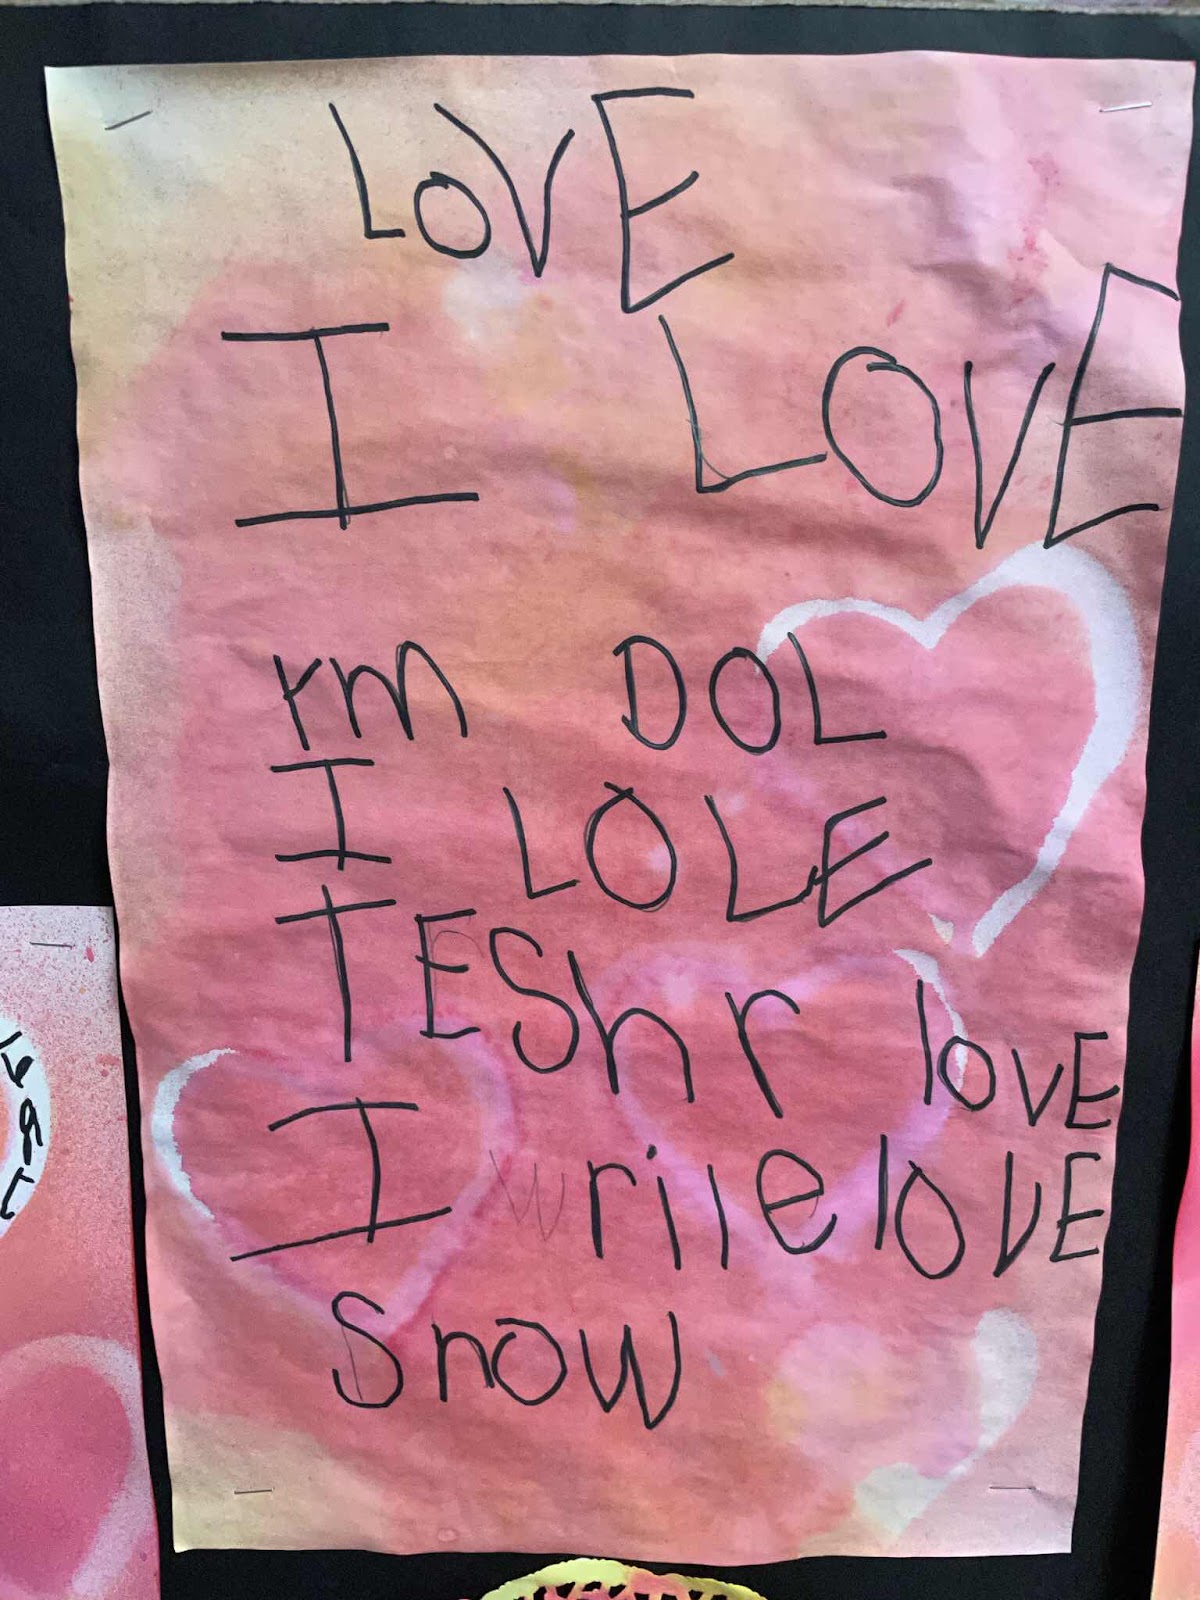 LOVE
I LOVE
rm DOL
I LOLE
TEShr love
I wriie love
Snow